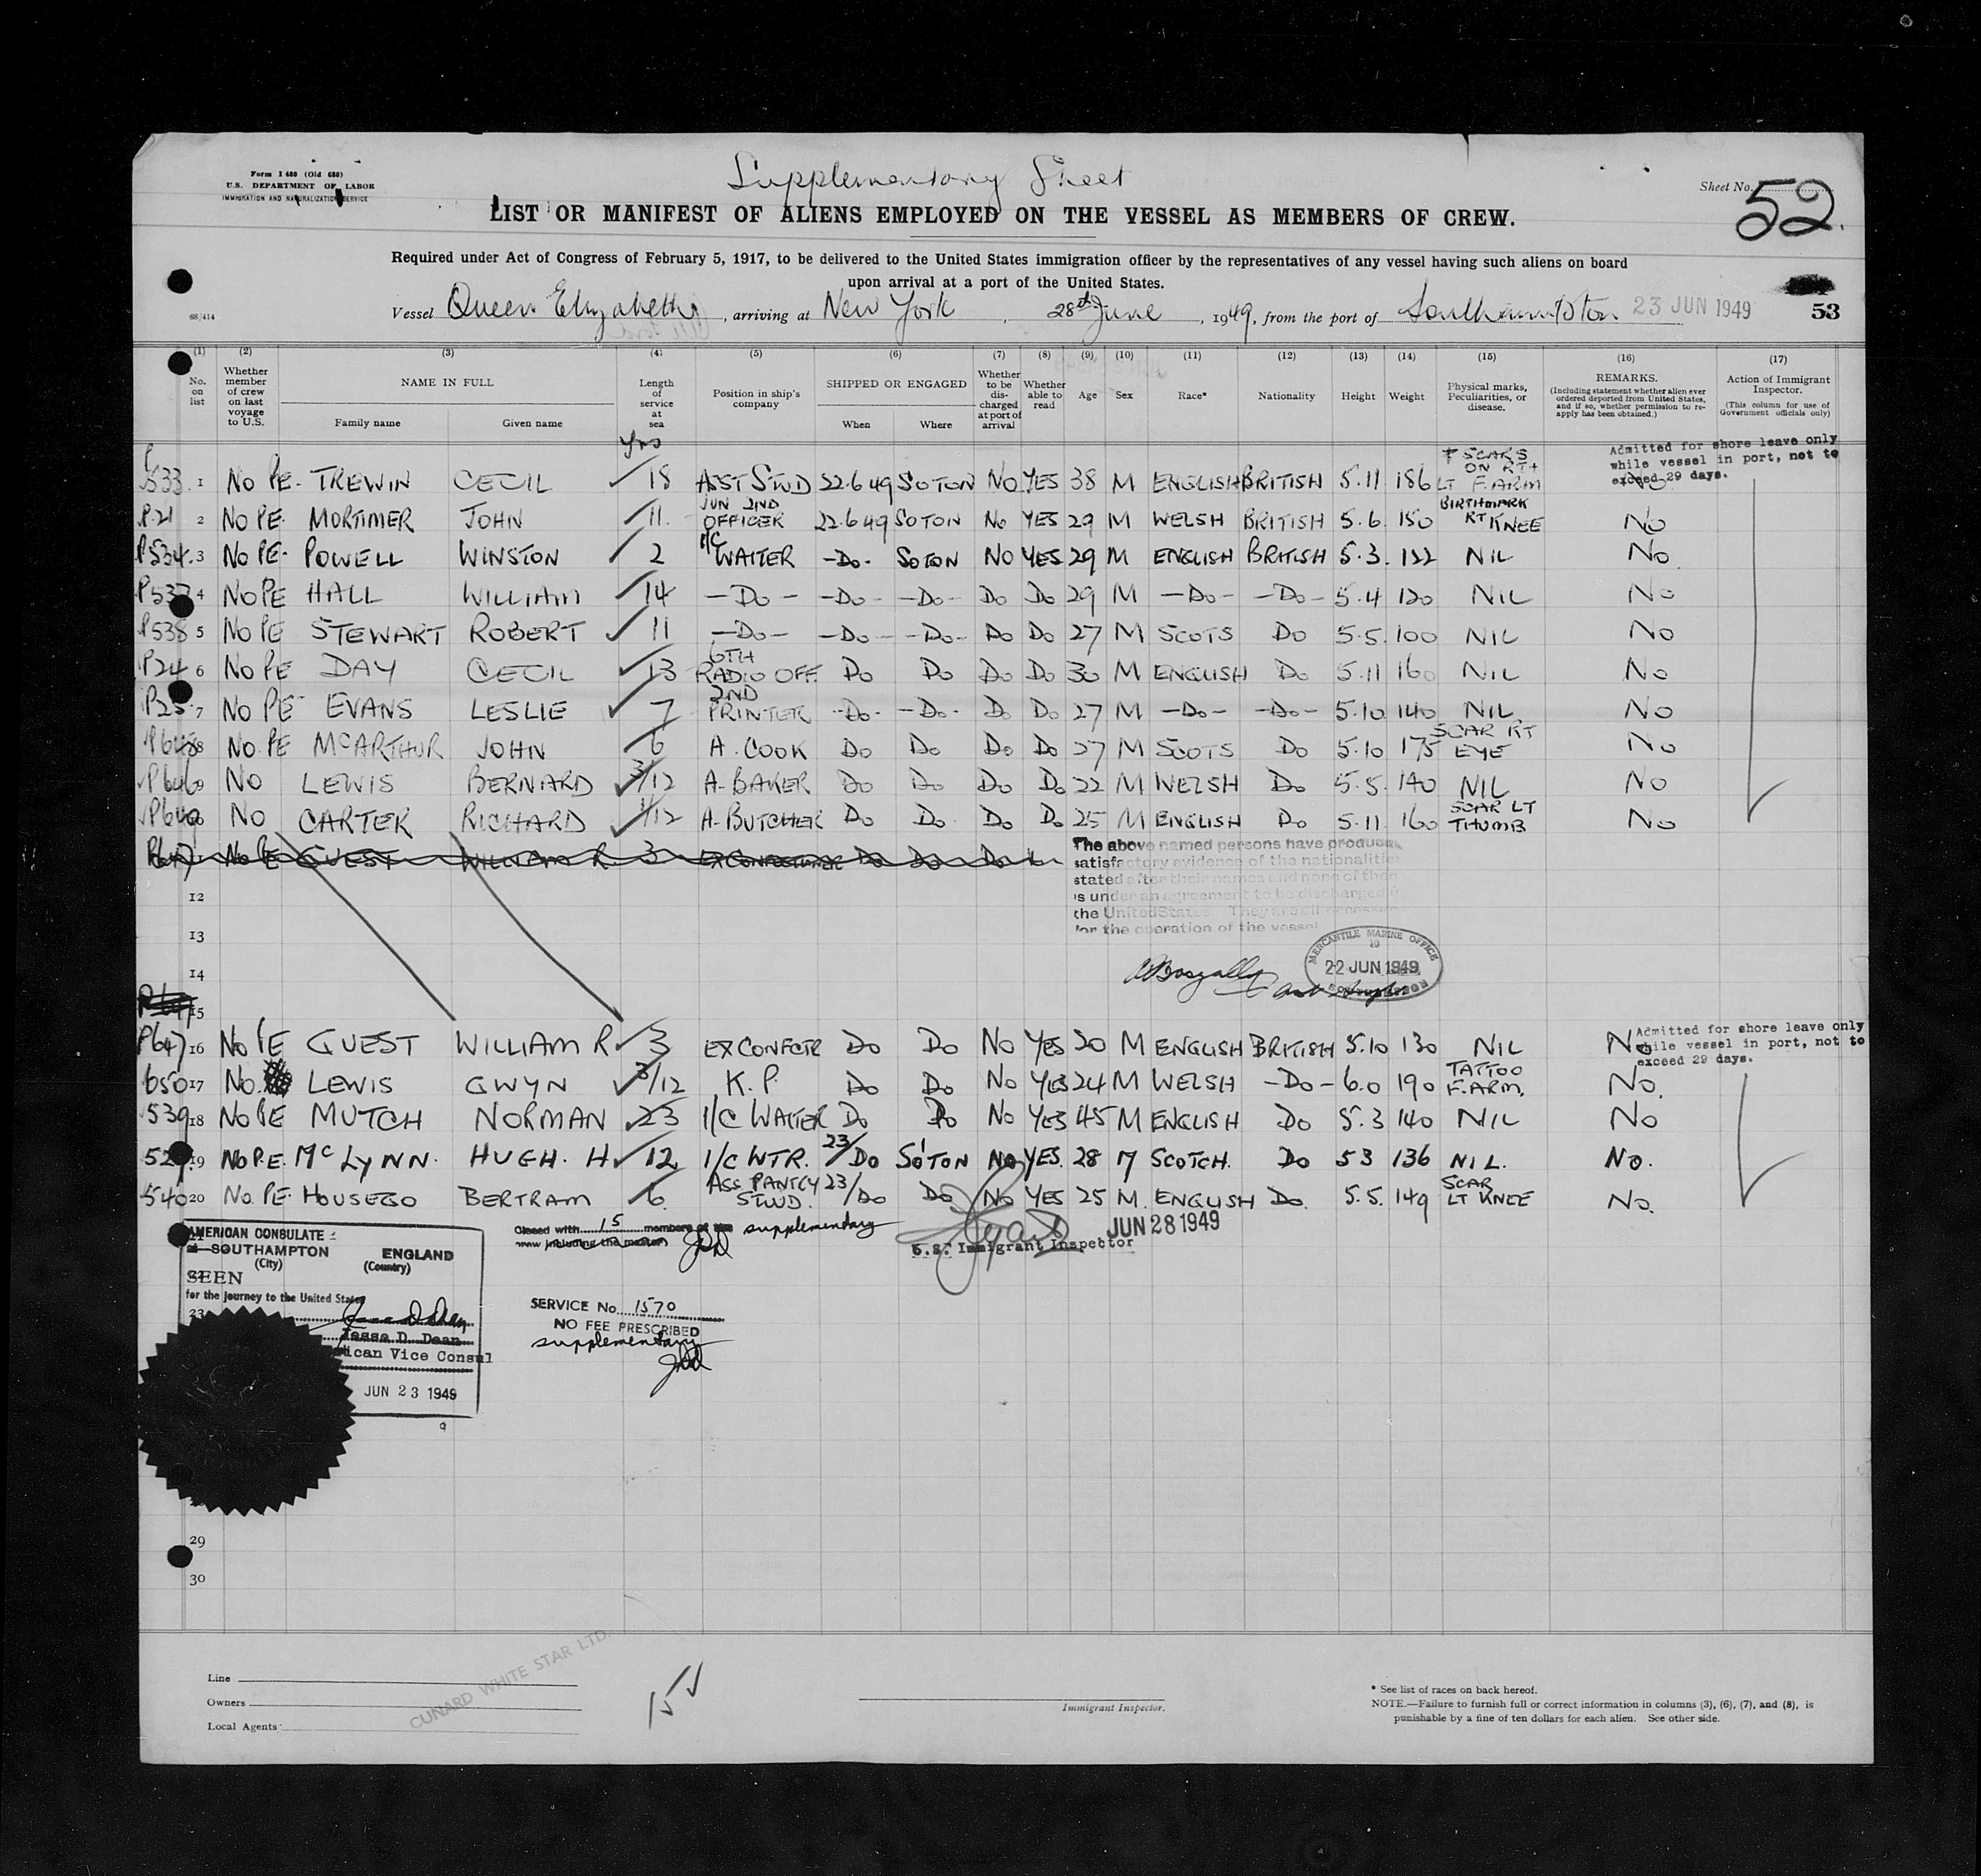 Form I 480 (Old 680)
U. S. DEPARTMENT OF LABOR
IMMIGRATION AND NATURALIZATION SERVICE
Supplementary Sheet
Sheet No. 52.
LIST OR MANIFEST OF ALIENS EMPLOYED ON THE VESSEL AS MEMBERS OF CREW.
Required under Act of Congress of February 5, 1917, to be delivered to the United States immigration officer by the representatives of any vessel having such aliens on board
upon arrival at a port of the United States.
68/414 Vessel Queen Elizabeth, arriving at New York, 28th June, 1949, from the port of Southampton 23 JUN 1949 53
(1) (2) (3) (4) (5) (6) (7) (8) (9) (10) (11) (12) (13) (14) (15) (16) (17)
No. on list Whether member of crew on last voyage to U.S. NAME IN FULL Family name Given name Length of service at sea Position in ship's company SHIPPED OR ENGAGED When Where Whether to be discharged at port of arrival Whether able to read Age Sex Race* Nationality Height Weight Physical marks, Peculiarities, or disease. REMARKS. (Including statement whether alien ever ordered deported from United States, and if so, whether permission to re-apply has been obtained.) Action of Immigrant Inspector. (This column for use of Government officials only)
yrs
Admitted for shore leave only
while vessel in port, not to
exceed 29 days.
533 1 No PE- TREWIN CECIL 18 ASST STWD 22.6.49 SOTON No YES 38 M ENGLISH BRITISH 5.11 186 SCARS ON RT + LT F.ARM No
P.21 2 No PE. MORTIMER JOHN 11. JUN 2ND OFFICER 22.6.49 SOTON No YES 29 M WELSH BRITISH 5.6. 150 BIRTHMARK RT KNEE No
P534. 3 No PE- POWELL WINSTON 2 1/C WAITER -Do- SOTON NO YES 29 M ENGLISH BRITISH 5.3. 122 NIL No
P537 4 No PE HALL WILLIAM 14 -Do- -Do- -Do- Do Do 29 M -Do- -Do- 5.4 120 NIL No
P538 5 No PE STEWART ROBERT 11 -Do- -Do- -Do- Do Do 27 M SCOTS Do 5.5. 100 NIL No
P24 6 No PE DAY CECIL 13 6TH RADIO OFF. Do Do Do Do 30 M ENGLISH Do 5.11 160 NIL No
P25 7 No PE EVANS LESLIE 7 2ND PRINTER -Do- -Do- D Do 27 M -Do- -Do- 5.10 140 NIL No
8 No. PE McARTHUR JOHN 6 A. COOK Do Do Do Do 27 M SCOTS Do 5.10 175 SCAR RT EYE No
P646 9 No LEWIS BERNARD 3/12 A. BAKER Do Do Do Do 22 M WELSH Do 5.5. 140 NIL No
No CARTER RICHARD 1/12 A. BUTCHER Do Do Do Do 25 M ENGLISH Do 5.11. 160 SCAR LT THUMB No
P647 No PE GUEST WILLIAM R 3 EX CONFECTIONER Do Do Do
The above named persons have produced
satisfactory evidence of the nationalities
stated after their names and none of them
is under an agreement to be discharged in
the United States. They are all necessary
for the operation of the vessel
12
13
14
15
MERCANTILE MARINE OFFICE
22 JUN 1949
SOUTHAMPTON
Admitted for shore leave only
while vessel in port, not to
exceed 29 days.
P647 16 No PE GUEST WILLIAM R 3 EX CONFCTR Do Do No YES 20 M ENGLISH BRITISH 5.10 130 NIL No
650 17 No. LEWIS GWYN 3/12 K. P. Do Do No YES 24 M WELSH -Do- 6.0 190 TATTOO F.ARM. No.
539 18 No PE MUTCH NORMAN 23 1/C WAITER Do Do No YES 45 M ENGLISH Do 5.3 140 NIL No
19 No P.E. McLYNN. HUGH. H 12 1/C WTR. 23/Do SO'TON No YES. 28 M SCOTCH. Do 5 3 136 NIL. No.
540 20 No. PE. HOUSEGO BERTRAM 6. ASS PANTRY STWD. 23/Do Do No YES 25 M. ENGLISH Do. 5.5. 149 SCAR LT KNEE No.
Closed with 15 members of the supplementary
crew including the master JDD
JUN 28 1949
U.S. Immigrant Inspector
AMERICAN CONSULATE
at SOUTHAMPTON ENGLAND
(City) (Country)
SEEN
for the journey to the United States
Jesse D. Dean
American Vice Consul
JUN 23 1949
SERVICE No. 1570
NO FEE PRESCRIBED
supplementary
JDD
29
30
CUNARD WHITE STAR LTD.
Line
Owners
Local Agents
15
Immigrant Inspector.
* See list of races on back hereof.
NOTE.—Failure to furnish full or correct information in columns (3), (6), (7), and (8), is
punishable by a fine of ten dollars for each alien. See other side.